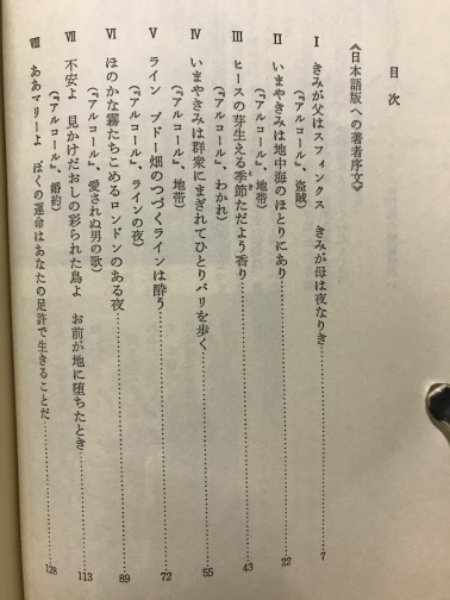 目次
《日本語版への著者序文》
Ⅰ きみが父はスフィンクス きみが母は夜なりき……7
(『アルコール』、盗賊)
Ⅱ いまやきみは地中海のほとりにあり……22
(『アルコール』、地帯)
Ⅲ ヒースの芽生える季節ただよう香り……43
とき
(『アルコール』、わかれ)
Ⅳ いまやきみは群衆にまぎれてひとりパリを歩く……55
(『アルコール』、地帯)
Ⅴ ライン ブドー畑のつづくラインは酔う……72
(『アルコール』、ラインの夜)
Ⅵ ほのかな霧たちこめるロンドンのある夜……89
(『アルコール』、愛されぬ男の歌)
Ⅶ 不安よ 見かけだおしの彩られた鳥よ お前が地に堕ちたとき……113
(『アルコール』、婚約)
Ⅷ ああマリーよ ぼくの運命はあなたの足許で生きることだ……128